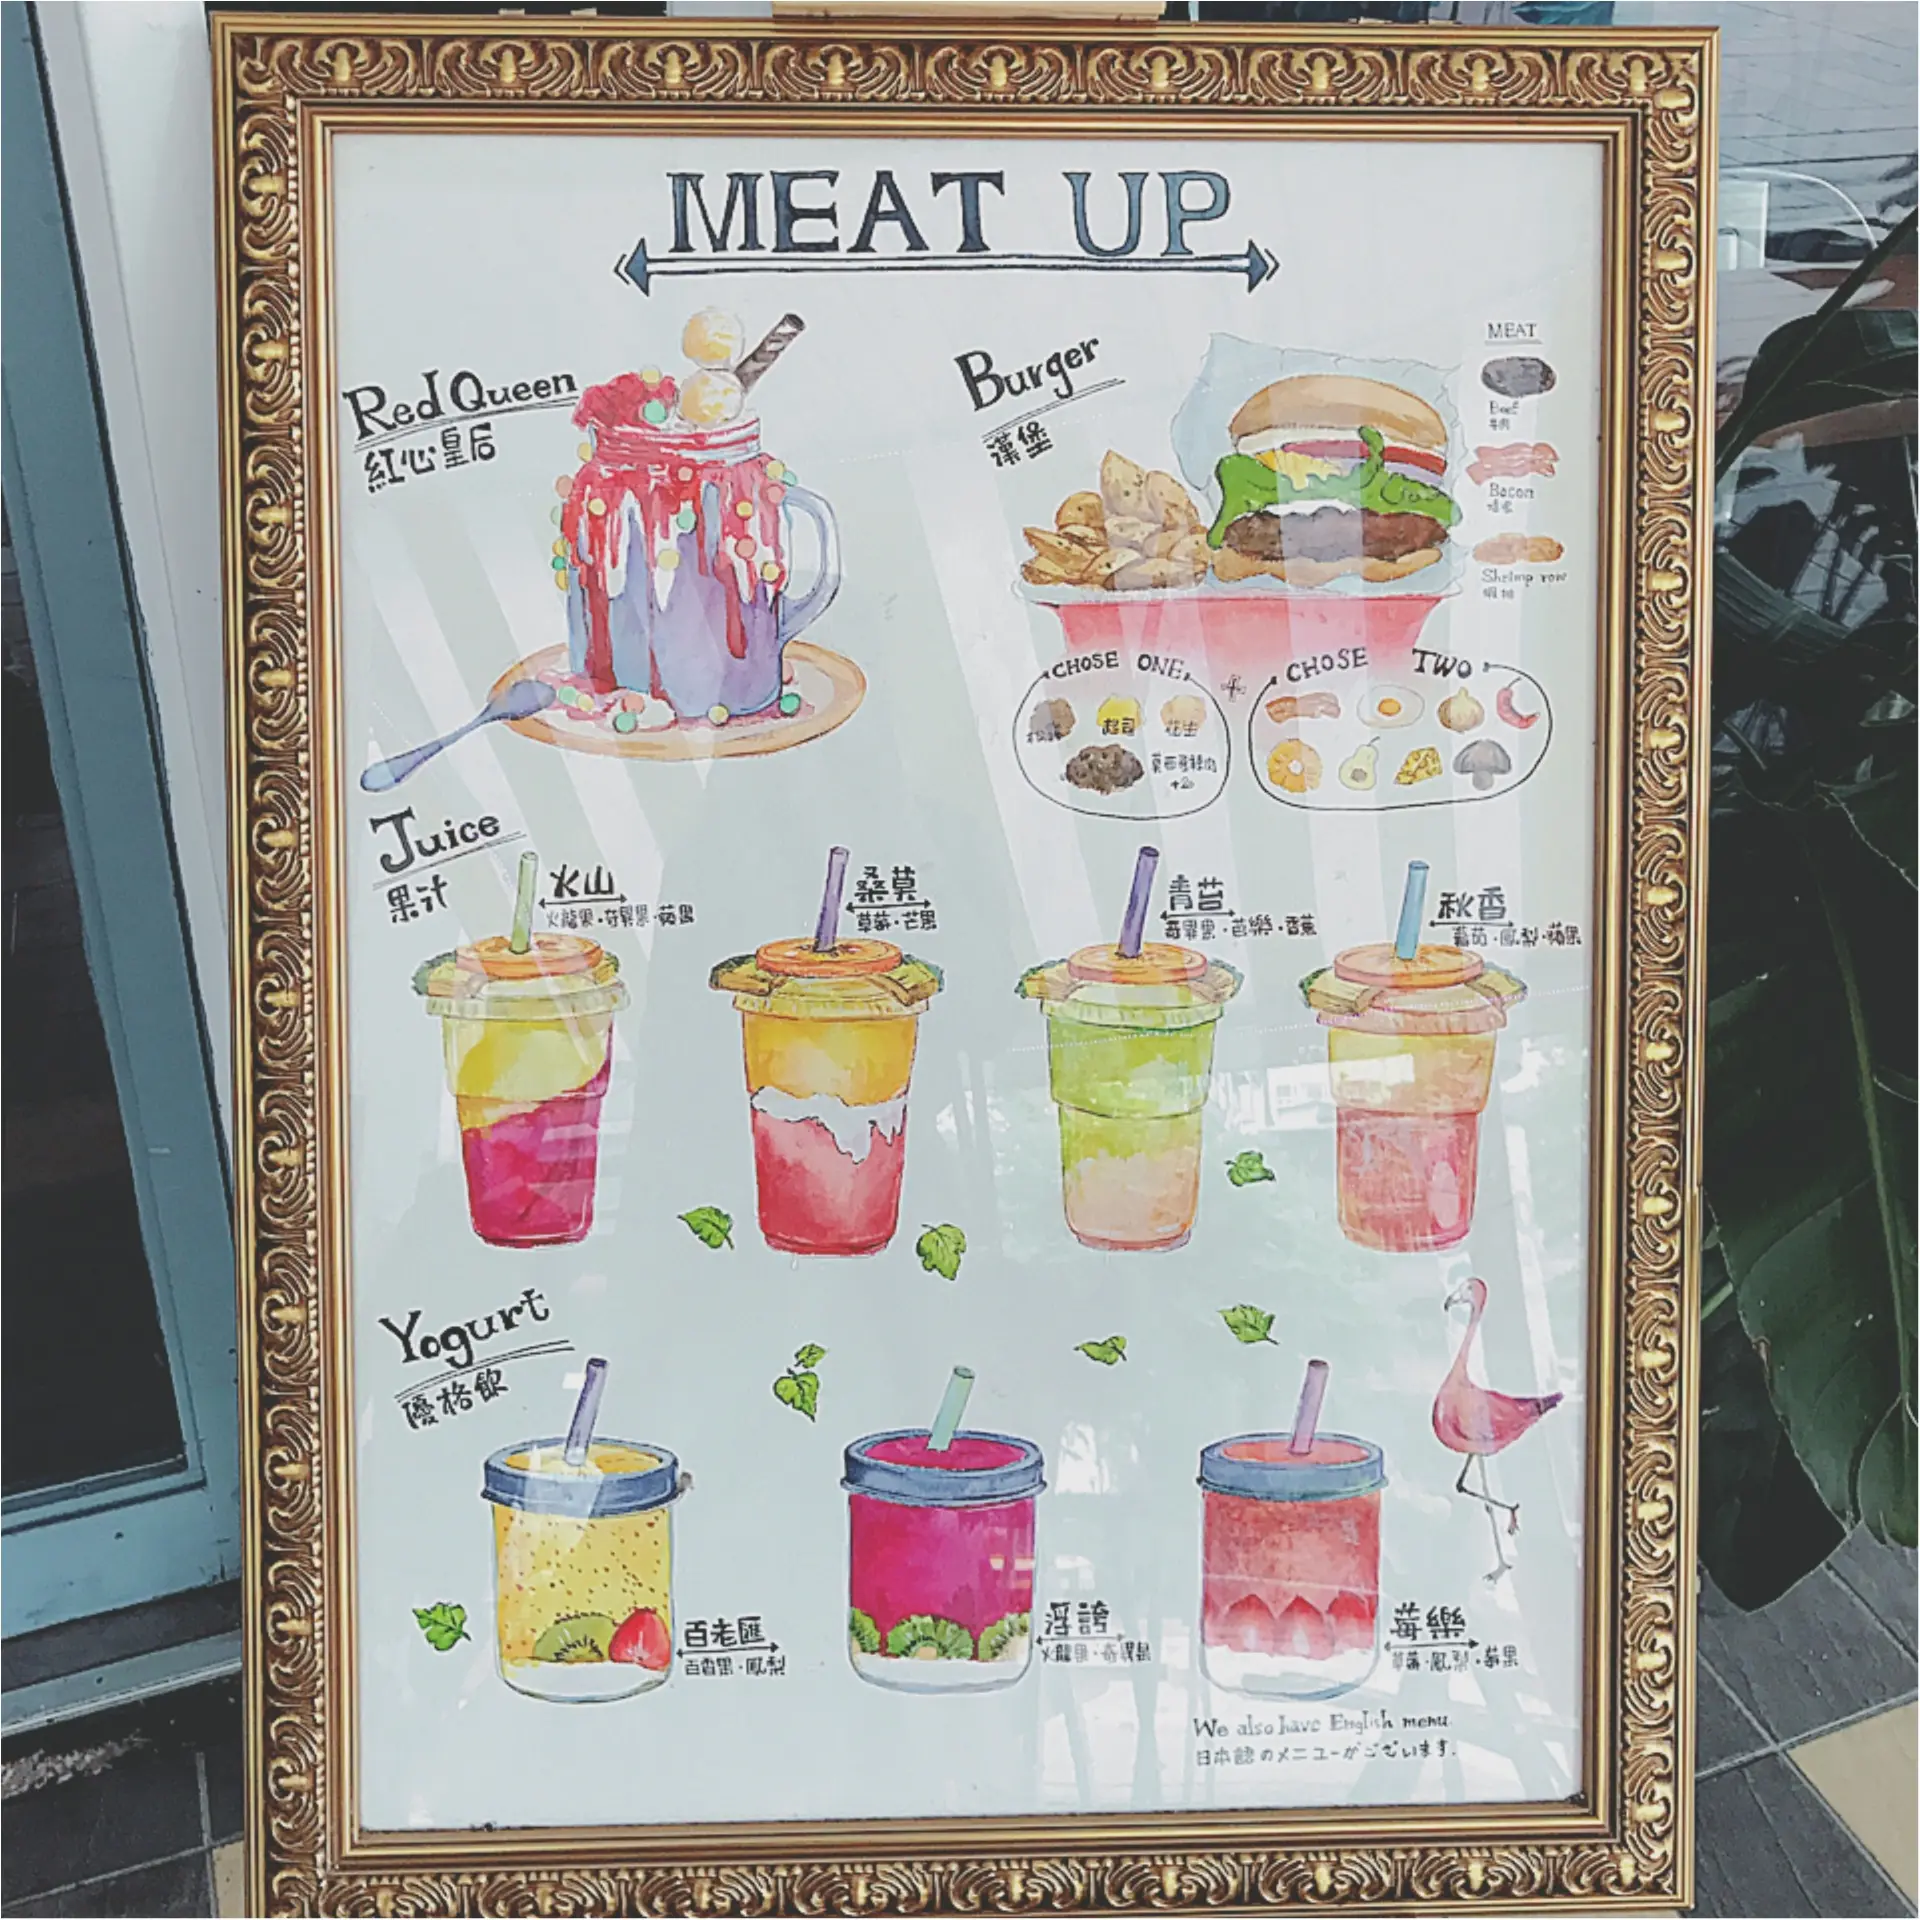 MEAT UP
Red Queen
紅心皇后
Burger
漢堡
MEAT
Beef
牛肉
Bacon
培根
Shrimp row
蝦排
CHOSE ONE
起司
花生
莫西哥辣肉
+20
+
CHOSE TWO
Juice
果汁
火山
火龍果·奇異果·蘋果
桑莫
草莓·芒果
青苔
奇異果·芭樂·香蕉
秋香
蕃茄·鳳梨·蘋果
Yogurt
優格飲
百老匯
百香果·鳳梨
浮誇
火龍果·奇異果
莓樂
草莓·鳳梨·蘋果
We also have English menu.
日本語のメニューがございます.